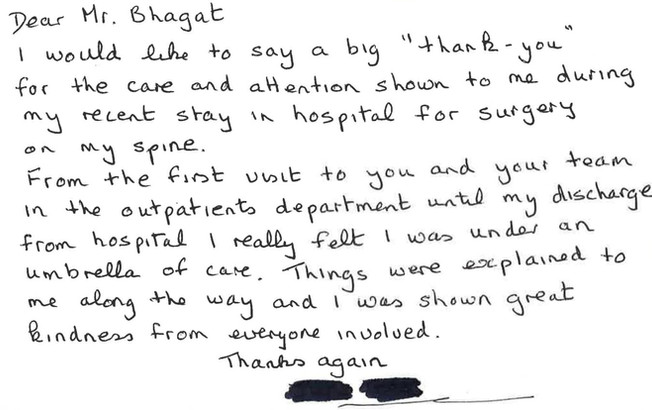 Dear Mr. Bhagat
I would like to say a big "thank-you"
for the care and attention shown to me during
my recent stay in hospital for surgery
on my spine.
From the first visit to you and your team
in the outpatients department until my discharge
from hospital I really felt I was under an
umbrella of care. Things were explained to
me along the way and I was shown great
kindness from everyone involved.
Thanks again